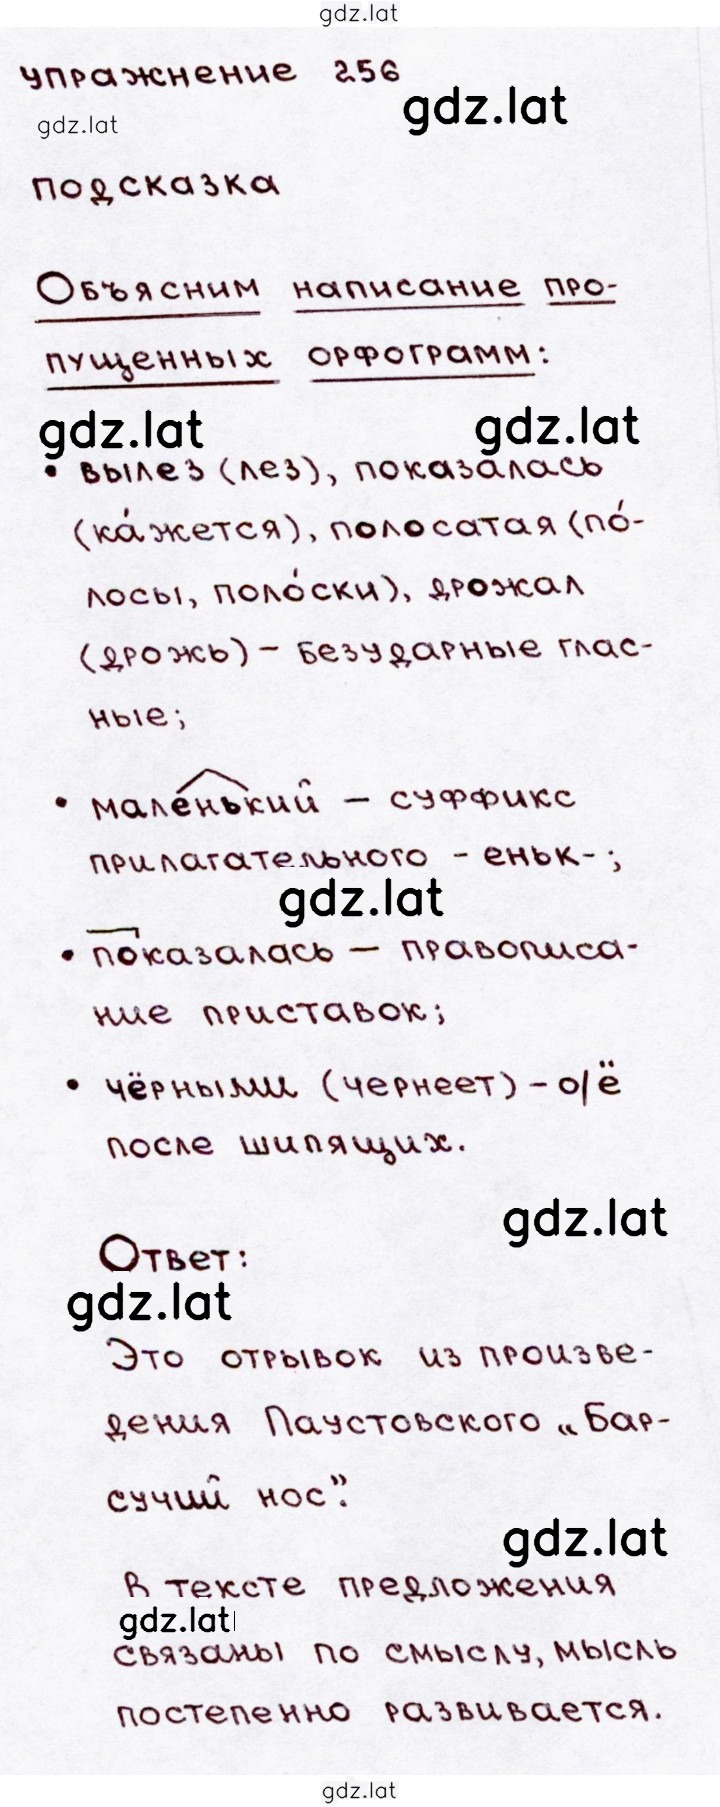 gdz.lat
упражнение 256
gdz.lat
gdz.lat
подсказка
Объясним написание про-
пущенных орфограмм:
gdz.lat
gdz.lat
• вылез (лез), показалась
(ка́жется), полосатая (по́-
лосы, поло́ски), дрожал
(дрожь) - безударные глас-
ные;
• маленький - суффикс
прилагательного - еньк-;
gdz.lat
• показалась - правописа-
ние приставок;
• чёрными (чернеет) - о/ё
после шипящих.
gdz.lat
Ответ:
gdz.lat
Это отрывок из произве-
дения Паустовского „Бар-
сучий нос”.
gdz.lat
В тексте предложения
gdz.lat
связаны по смыслу, мысль
постепенно развивается.
gdz.lat